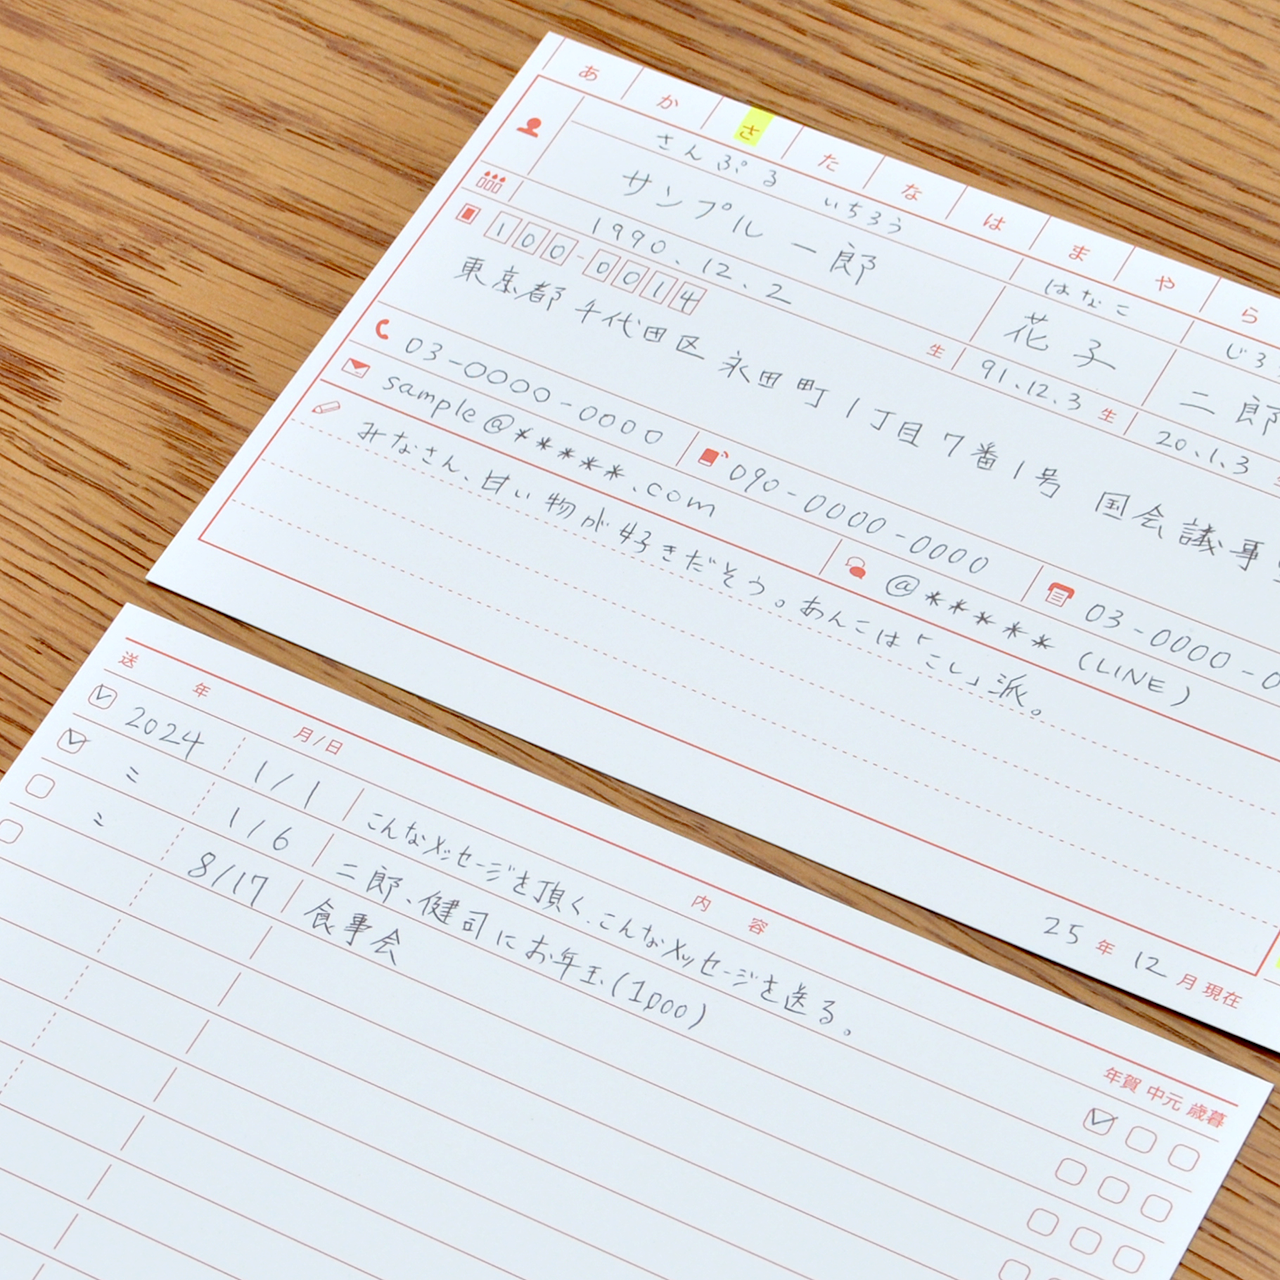 あ か さ た な は ま や ら
さんぷる いちろう はなこ じろ
サンプル 一郎 花子 二郎
1990.12.2 生 91.12.3 生 20.1.3
100-0014
東京都千代田区永田町1丁目7番1号 国会議事
03-0000-0000 090-0000-0000 03-0000-0
sample@*****.com @*****(LINE)
みなさん、甘い物が好きだそう。あんこは「こし」派。
25年 12月 現在
送 年 月/日 内 容 年賀 中元 歳暮
2024 1/1 こんなメッセージを頂く、こんなメッセージを送る。
〃 1/6 二郎、健司にお年玉(1000)
〃 8/17 食事会